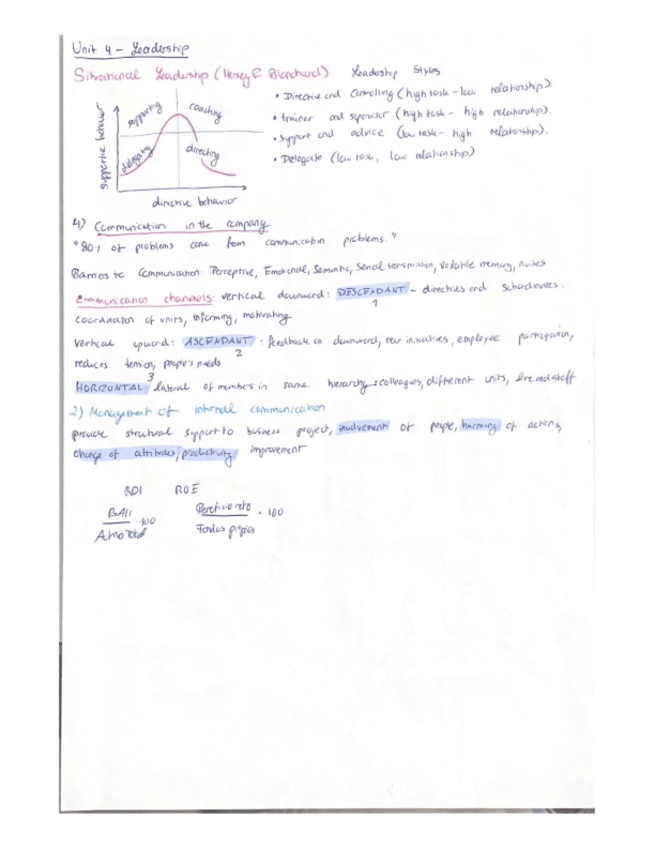 Unit 4 - Leadership
Situational Leadership (Hersey & Blanchard)
Leadership Styles
• Directive and Controlling (high task - low relationship).
• trainer and supervisor (high task - high relationship).
• Support and advice (low task - high relationship).
• Delegate (low task, low relationship)
supportive behavior
supporting
coaching
delegating
directing
directive behavior
4) Communication in the company
"80% of problems come from communication problems."
Barriers to Communication: Perceptive, Emotional, Semantic, Serial transmission, Volatile memory, noises
Communication channels: vertical downward: DESCENDANT - directives and subordinates:
1
coordination of units, informing, motivating
vertical upward: ASCENDANT: feedback on downward, new initiatives, employee participation,
2
reduces tension, people's needs
3
HORIZONTAL: lateral of members in same hierarchy: colleagues, different units, line and staff
2) Management of internal communication
provide structural support to business project, involvement of people, harmony of actions,
change of attitudes, productivity improvement
ROI ROE
BAII / Activo Total · 100
Beneficio neto / Fondos propios · 100